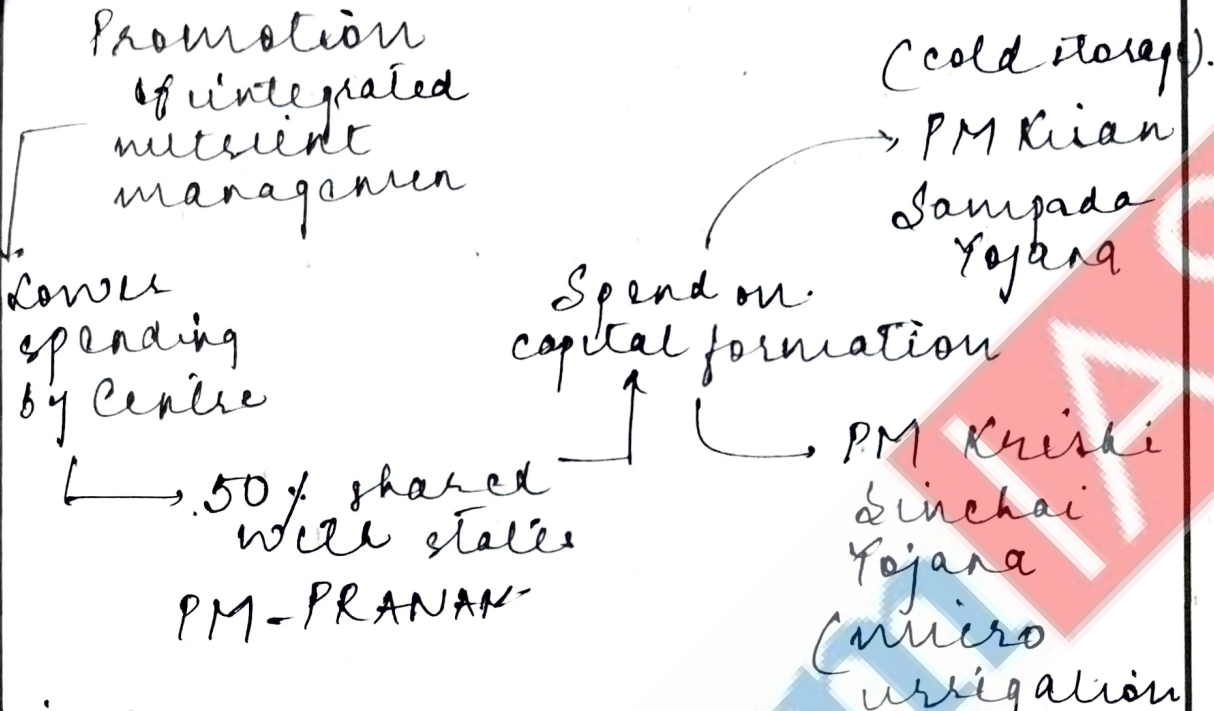 Promotion
of integrated
nutrient
managemen
Lower
spending
by Centre
50% shared
with states
PM-PRANAM
Spend on
capital formation
(cold storage).
PM Kisan
Sampada
Yojana
PM Krishi
Sinchai
Yojana
(micro
irrigation
IAS